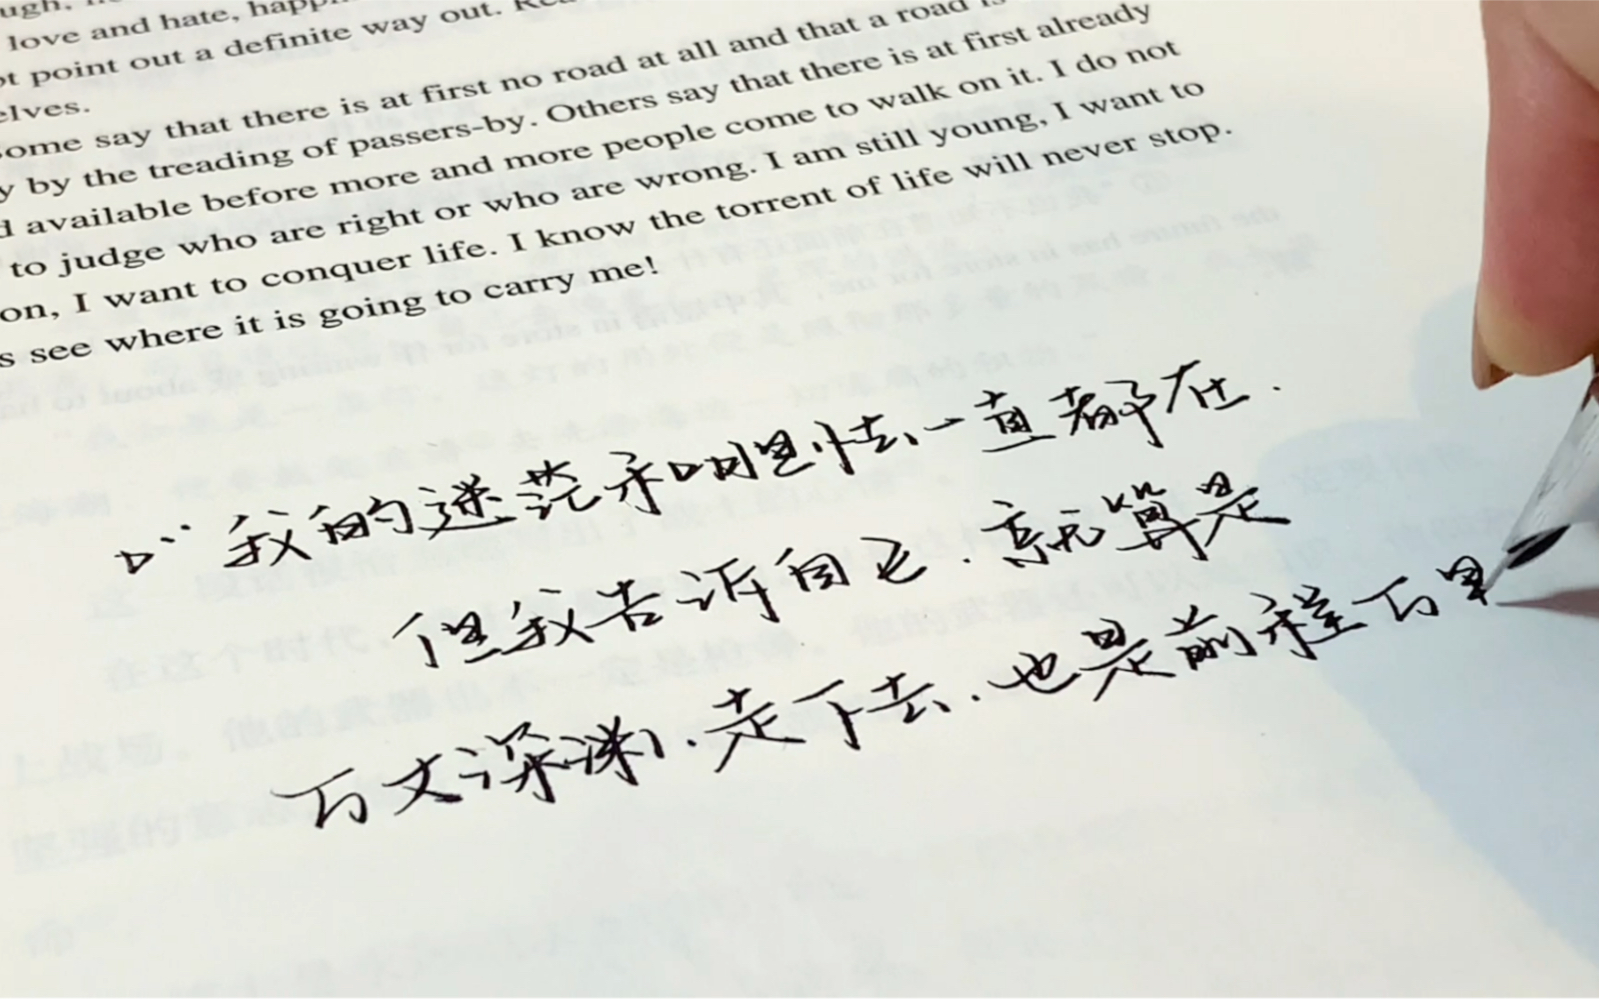 ugh,
love and hate,
ot point out a definite way out.
elves.
ome say that there is at first no road at all and that a road is
y by the treading of passers-by. Others say that there is at first already
d available before more and more people come to walk on it. I do not
to judge who are right or who are wrong. I am still young, I want to
on, I want to conquer life. I know the torrent of life will never stop.
s see where it is going to carry me!
我的迷茫和胆怯一直都在.
但我告诉自己.就算是
万丈深渊.走下去.也是前程万里